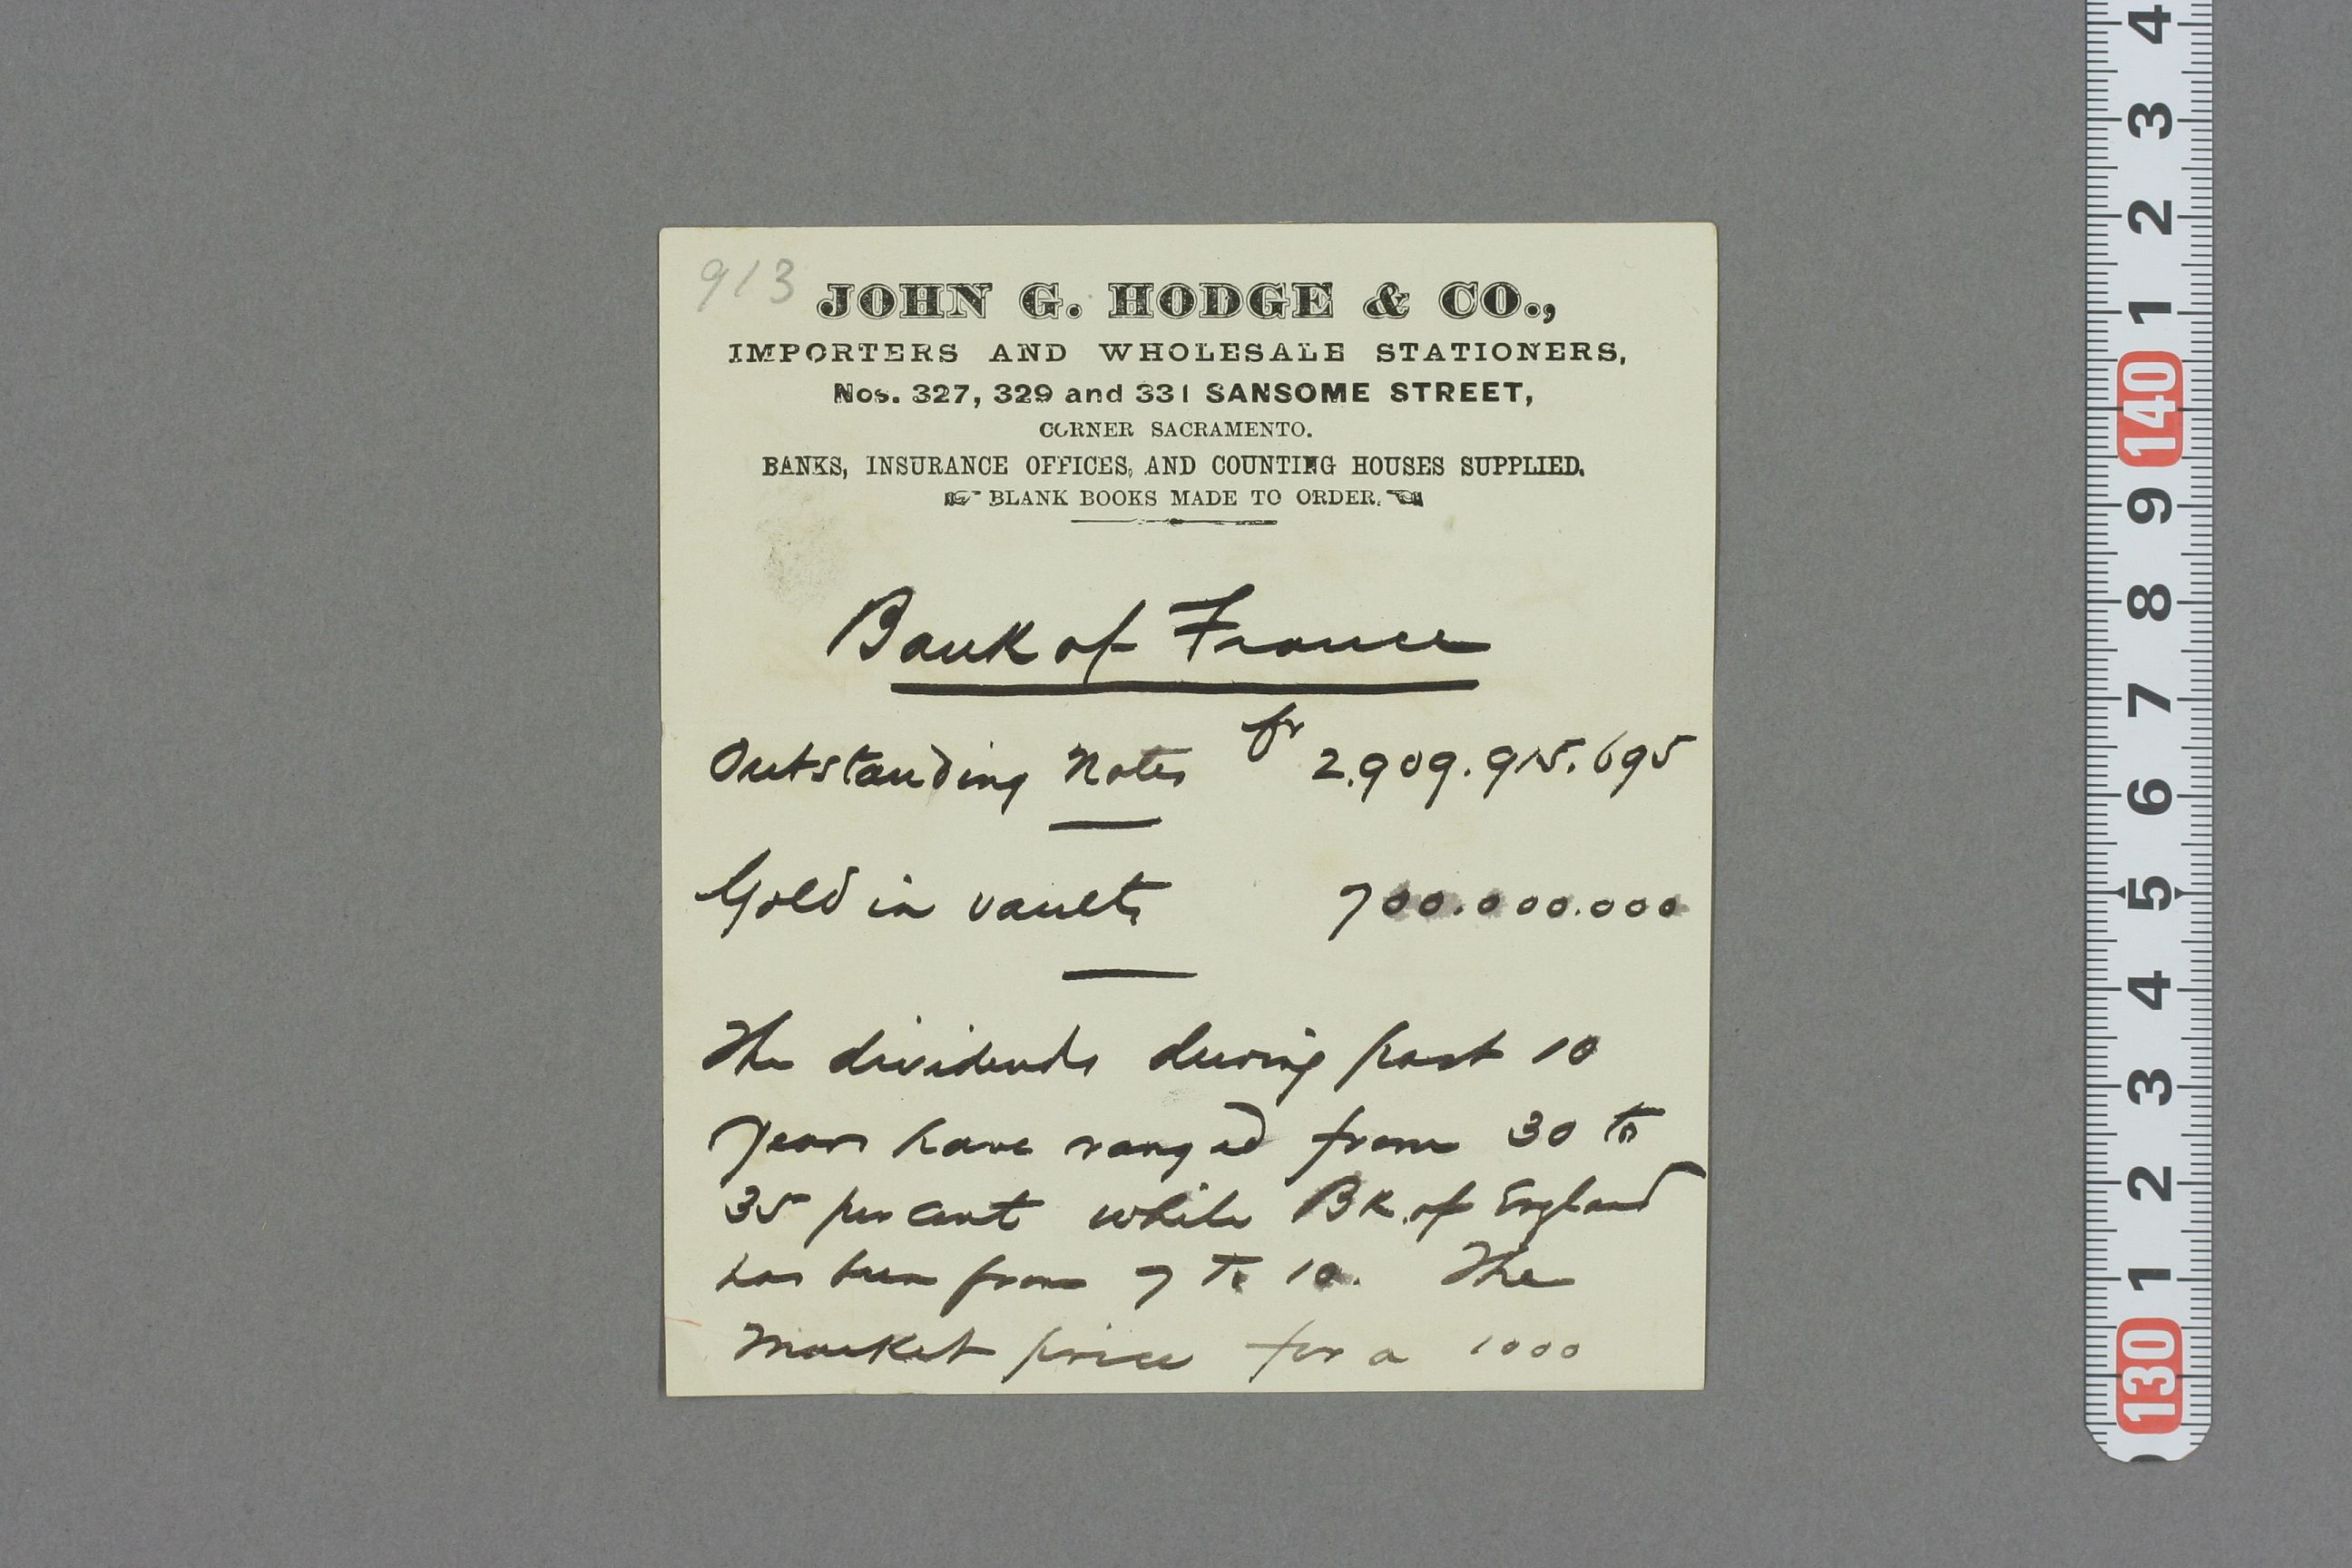 913
JOHN G. HODGE & CO.,
IMPORTERS AND WHOLESALE STATIONERS,
Nos. 327, 329 and 331 SANSOME STREET,
CORNER SACRAMENTO.
BANKS, INSURANCE OFFICES, AND COUNTING HOUSES SUPPLIED.
BLANK BOOKS MADE TO ORDER.
Bank of France
Outstanding Notes fr 2.909.915.695
Gold in vaults 700.000.000
The dividends during past 10
years have ranged from 30 to
35 per cent while Bk. of England
has been from 7 to 10. The
Market price for a 1000
4
3
2
1
140
9
8
7
6
5
4
3
2
1
130